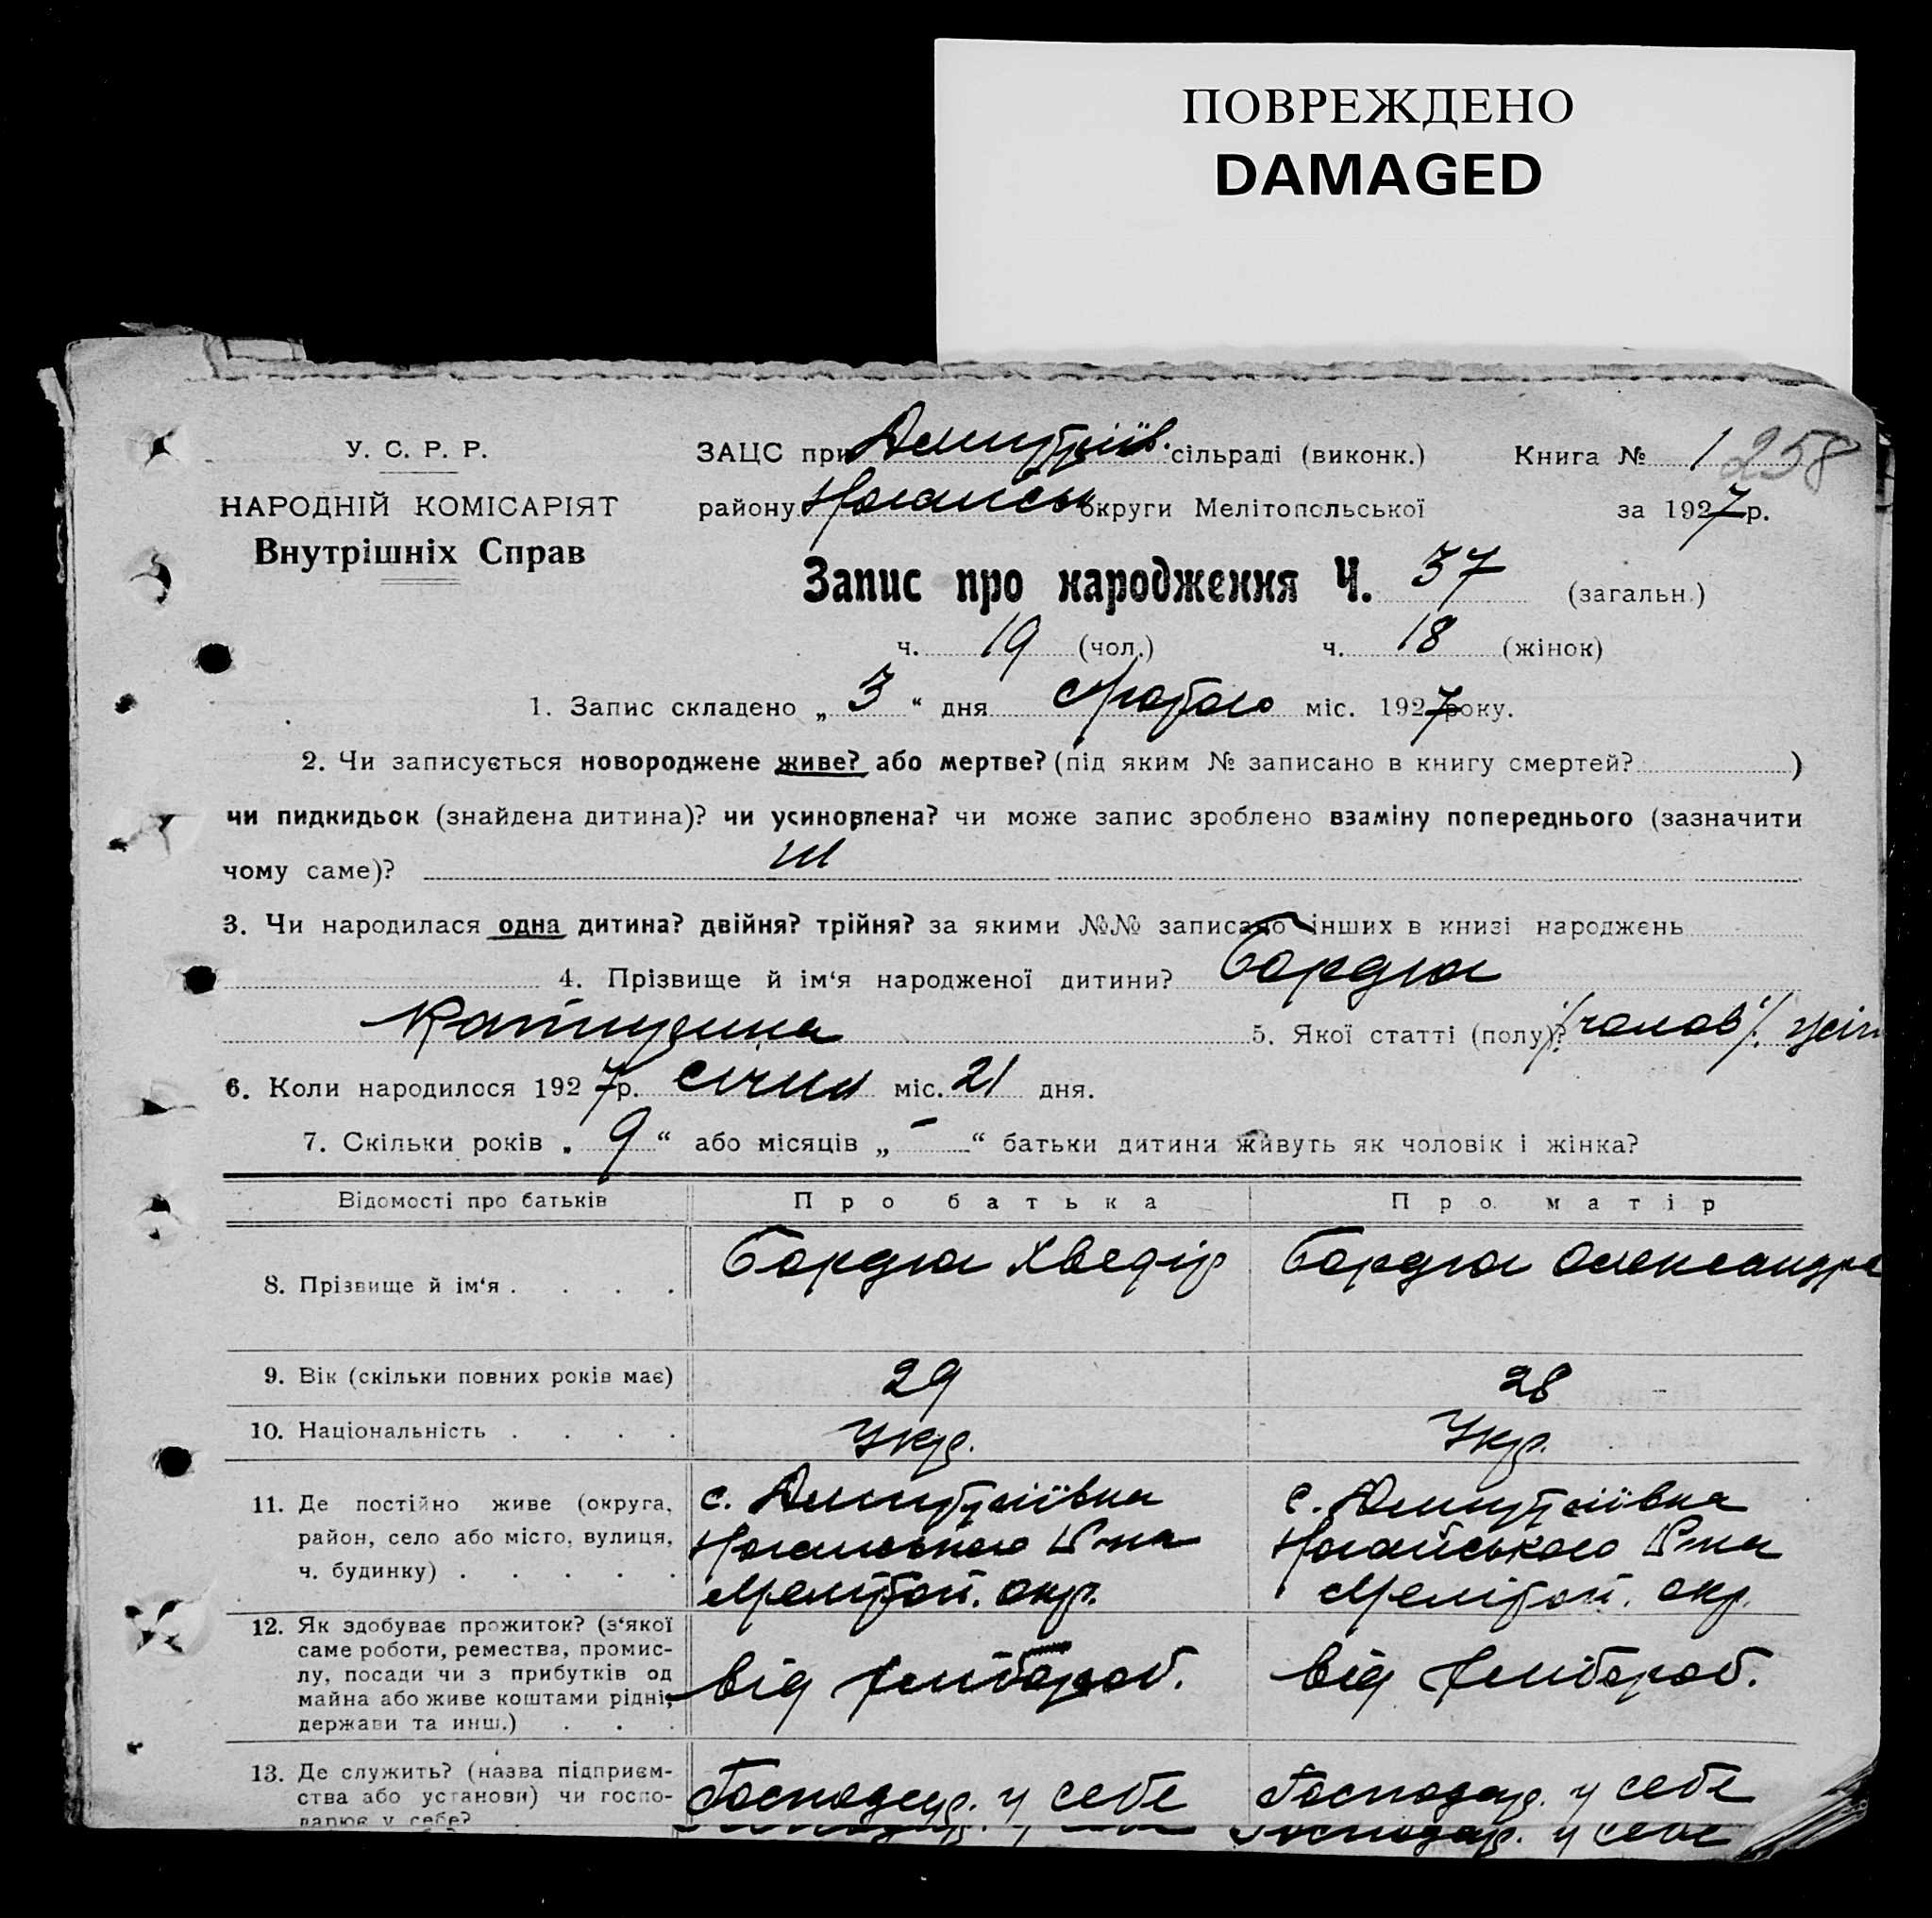 ПОВРЕЖДЕНО
DAMAGED
У. С. Р. Р.
НАРОДНІЙ КОМІСАРІЯТ
Внутрішніх Справ
ЗАЦС при Дмитріїв. сільраді (виконк.) Книга № 1 258
району Ногайськ округи Мелітопольської за 1927 р.
Запис про народження Ч. 37 (загальн.)
ч. 19 (чол.) ч. 18 (жінок)
1. Запис складено „ 3 “ дня Лютого міс. 1927 року.
2. Чи записується новороджене живе? або мертве? (під яким № записано в книгу смертей? )
чи пидкидьок (знайдена дитина)? чи усиновлена? чи може запис зроблено взаміну попереднього (зазначити
чому саме)?
3. Чи народилася одна дитина? двійня? трійня? за якими №№ записано інших в книзі народжень
4. Прізвище й ім‘я народженої дитини?
5. Якої статті (полу)? /чолов/.
6. Коли народилося 1927 р. січня міс. 21 дня.
7. Скільки років „ 9 “ або місяців „ - “ батьки дитини живуть як чоловік і жінка?
Відомості про батьків Про батька Про матір
8. Прізвище й ім‘я . . . . Хведір Олександра
9. Вік (скільки повних років має) 29 28
10. Національність . . . . Укр. Укр.
11. Де постійно живе (округа, с. Дмитріївка с. Дмитріївка
район, село або місто, вулиця, Ногайського Р-на Ногайського Р-на
ч. будинку) . . . . . Мелітоп. окр. Мелітоп. окр.
12. Як здобуває прожиток? (з‘якої
саме роботи, ремества, промис-
лу, посади чи з прибутків од від хлібороб. від хлібороб.
майна або живе коштами рідні,
держави та инш.) . . .
13. Де служить? (назва підприєм-
ства або установи) чи госпо- Господар. у себе Господар. у себе
дарює у себе?
Господар. у себе